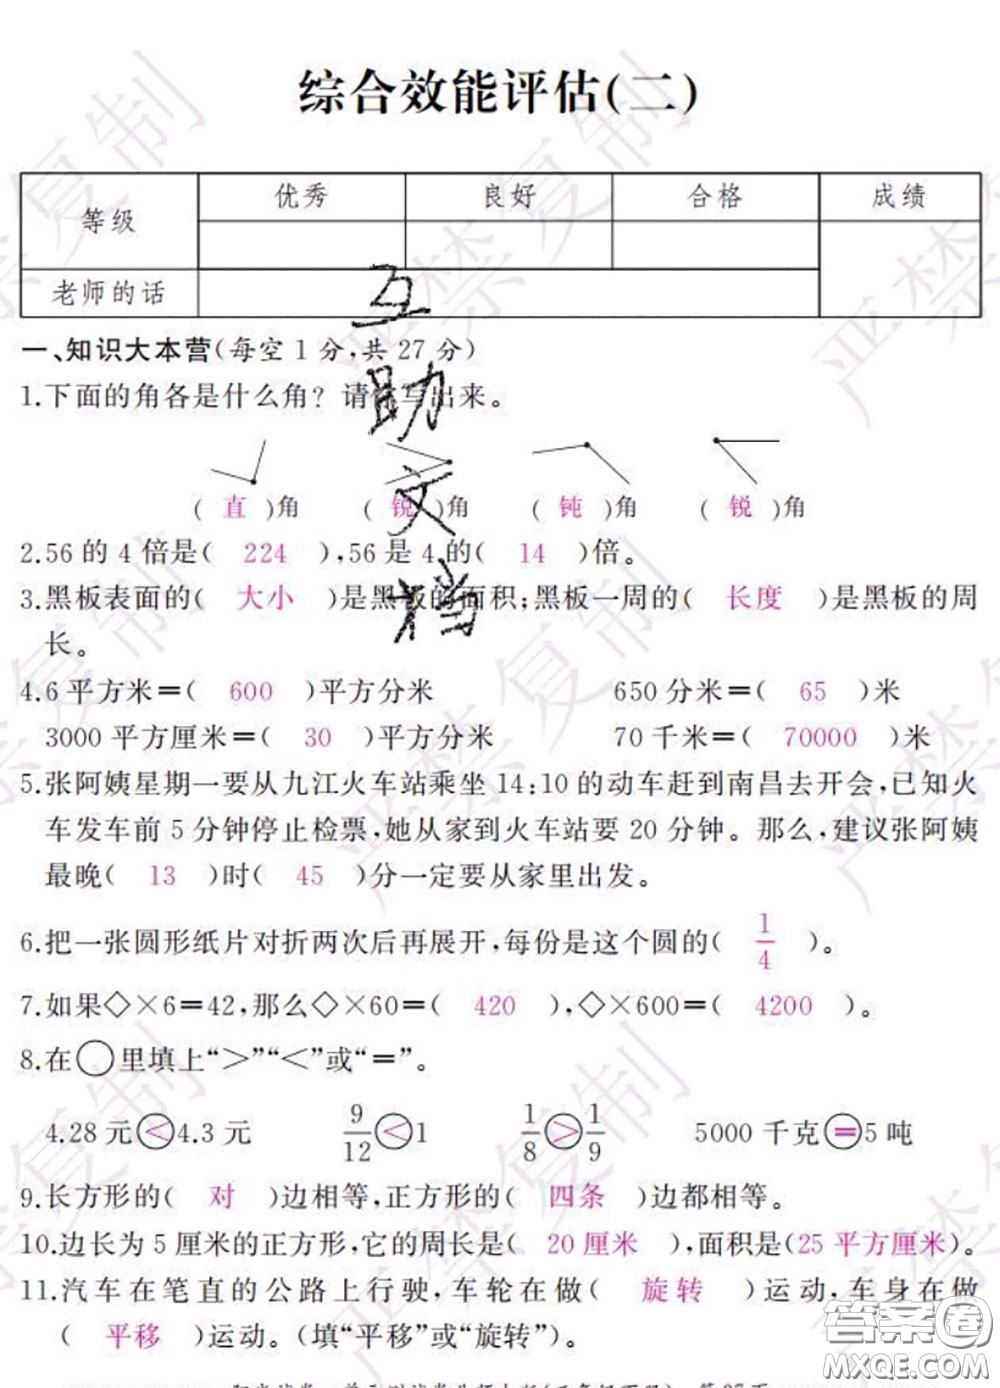 综合效能评估(二)
等级 优秀 良好 合格 成绩
老师的话
一、知识大本营(每空1分,共27分)
1.下面的角各是什么角？请你写出来。
( 直 )角 ( 锐 )角 ( 钝 )角 ( 锐 )角
2.56的4倍是( 224 ),56是4的( 14 )倍。
3.黑板表面的( 大小 )是黑板的面积;黑板一周的( 长度 )是黑板的周
长。
4.6平方米=( 600 )平方分米 650分米=( 65 )米
3000平方厘米=( 30 )平方分米 70千米=( 70000 )米
5.张阿姨星期一要从九江火车站乘坐14:10的动车赶到南昌去开会,已知火
车发车前5分钟停止检票,她从家到火车站要20分钟。那么,建议张阿姨
最晚( 13 )时( 45 )分一定要从家里出发。
6.把一张圆形纸片对折两次后再展开,每份是这个圆的( 1/4 )。
7.如果◇×6=42,那么◇×60=( 420 ),◇×600=( 4200 )。
8.在○里填上“>”“<”或“=”。
4.28元<4.3元 9/12<1 1/8>1/9 5000千克=5吨
9.长方形的( 对 )边相等,正方形的( 四条 )边都相等。
10.边长为5厘米的正方形,它的周长是( 20厘米 ),面积是(25平方厘米)。
11.汽车在笔直的公路上行驶,车轮在做( 旋转 )运动,车身在做
( 平移 )运动。(填“平移”或“旋转”)。
互助文档
严禁复制
答案圈
MXQE.COM